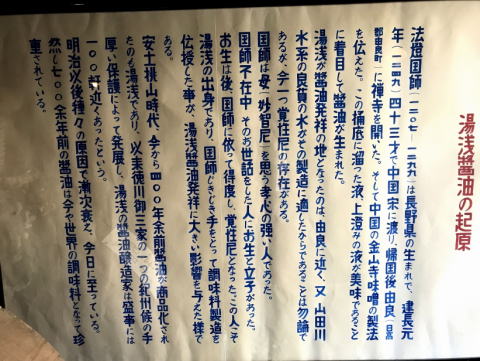 湯浅醬油の起原
法燈国師(一二〇七、一二九九)は長野県の生まれで、建長元
年(一二四九)四十三才で中国宋に渡り、帰国後由良(日高
郡由良町)に禅寺を開いた。そして中国の金山寺味噌の製法
を伝えた。この桶底に溜った液、上澄みの液が美味であること
に着目して醬油が生まれた。
湯浅が醬油発祥の地となったのは、由良に近く又、山田川
水系の良質の水がその製造に適したからであることは勿論で
あるが、今一つ覚性尼の存在がある。
国師は母(妙智尼)を思う孝心の強い人であった。
国師不在中、そのお世話をした人にお生と立子があった。
お生は後、国師に依って得度し、覚性尼となった。この人こそ
湯浅の出身であり、国師じきじき手をとって調味料製造を
伝授した事が、湯浅醬油発祥に大きい影響を与えた様で
ある。
安土桃山時代、今から四〇〇年余前醬油が商品化され
たのも湯浅であり、以来徳川御三家の一つの紀州候の手
厚い保護によって発展し、湯浅の醬油醸造家は盛事には
一〇〇軒近くあったという。
明治以後種々の原因で漸次衰え、今日に至っている。
然し七〇〇余年前の醬油は今や世界の調味料となって珍
重されている。